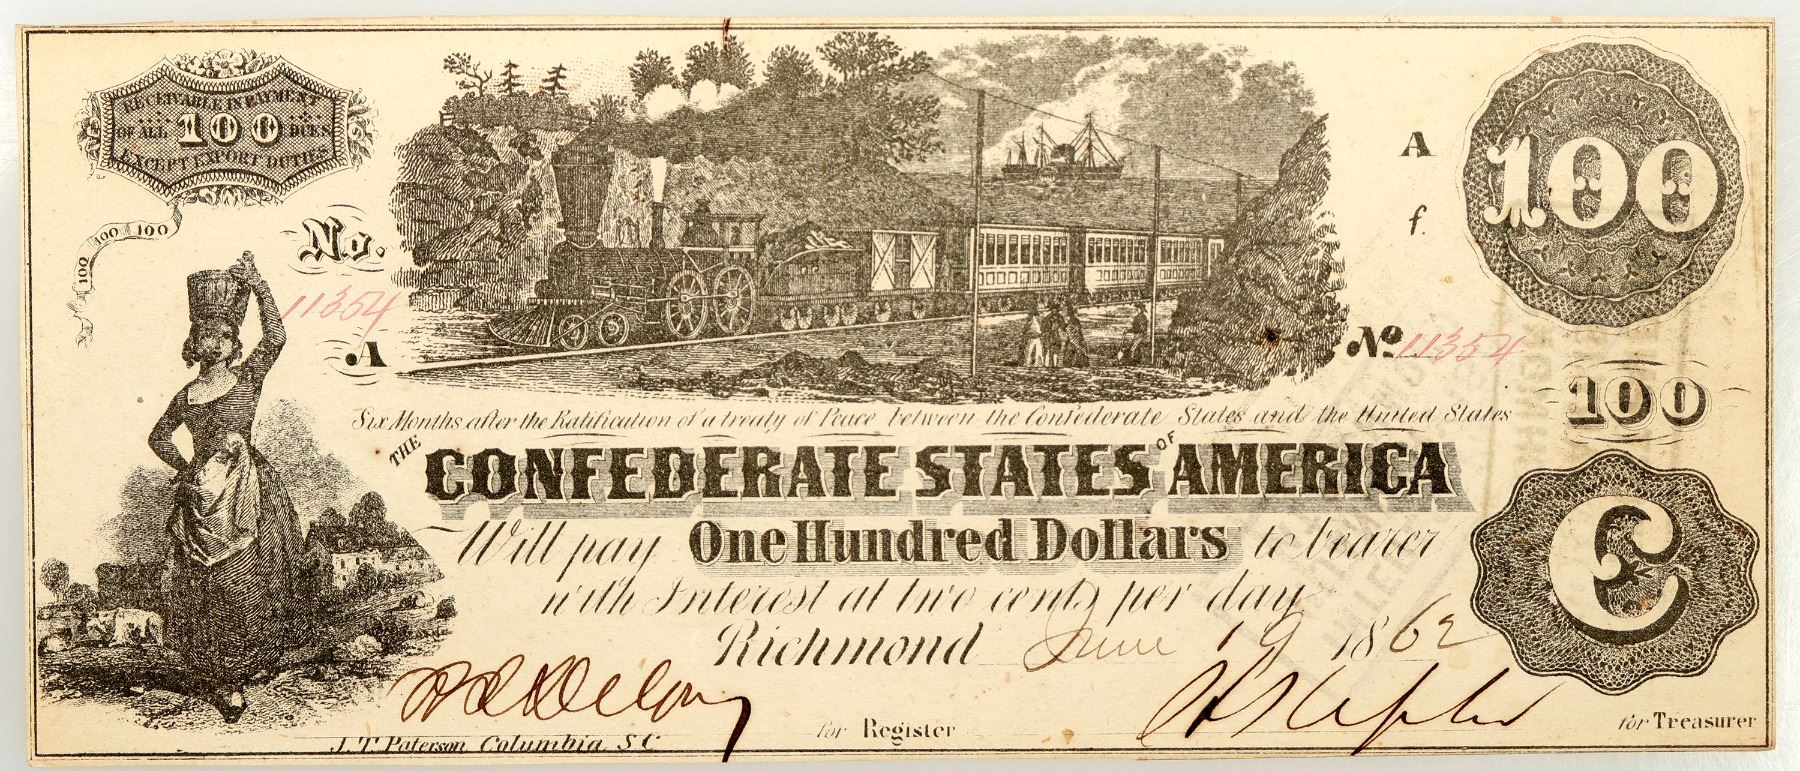 RECEIVABLE IN PAYMENT
OF ALL 100 DUES
EXCEPT EXPORT DUTIES
100 100 100
No.
11354
A
A
f.
100
No 11354
100
Six Months after the Ratification of a treaty of Peace between the Confederate States and the United States
THE CONFEDERATE STATES OF AMERICA
Will pay One Hundred Dollars to bearer
with Interest at two cents per day
Richmond June 19 1862
C
for Register
for Treasurer
J. T. Paterson Columbia, S C